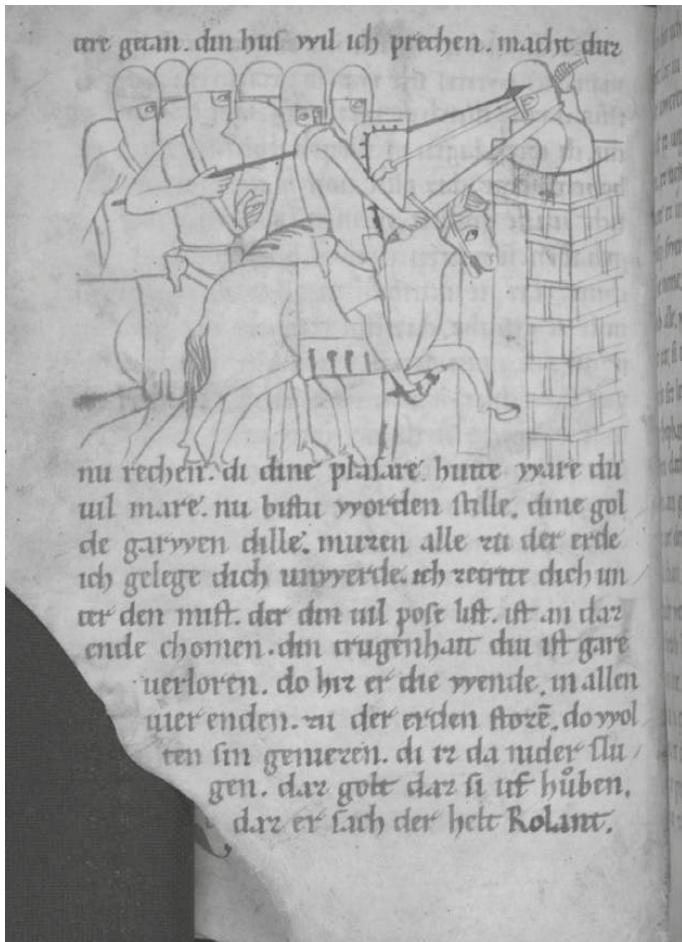 tere getan. din hus wil ich prechen. macht duz
nu rechen. di dine plasare. hutte ware du
uil mare. nu bistu worden stille. dine gol
de garwen dille. muzen alle zu der erde
ich gelege dich unwerde. ich zetrite dich un
ter den mist. der din uil pose list. ist an daz
ende chomen. din trugenhait diu ist gare
uerloren. do hiz er die wende. in allen
uier enden. zu der erden storē. do wol
ten sin geniezen. di iz da nider slu
gen. daz golt daz si uf hůben.
daz er sach der helt Rolant.